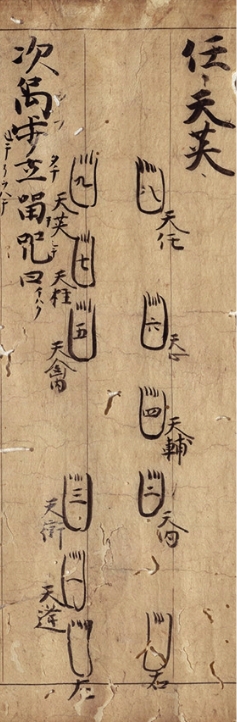 任、天英、
八
天任
六
天心
四
天輔
二
天内
右
九
天英
七
天柱
五
天禽
三
天衝
一
天蓬
左
次禹步立留咒曰